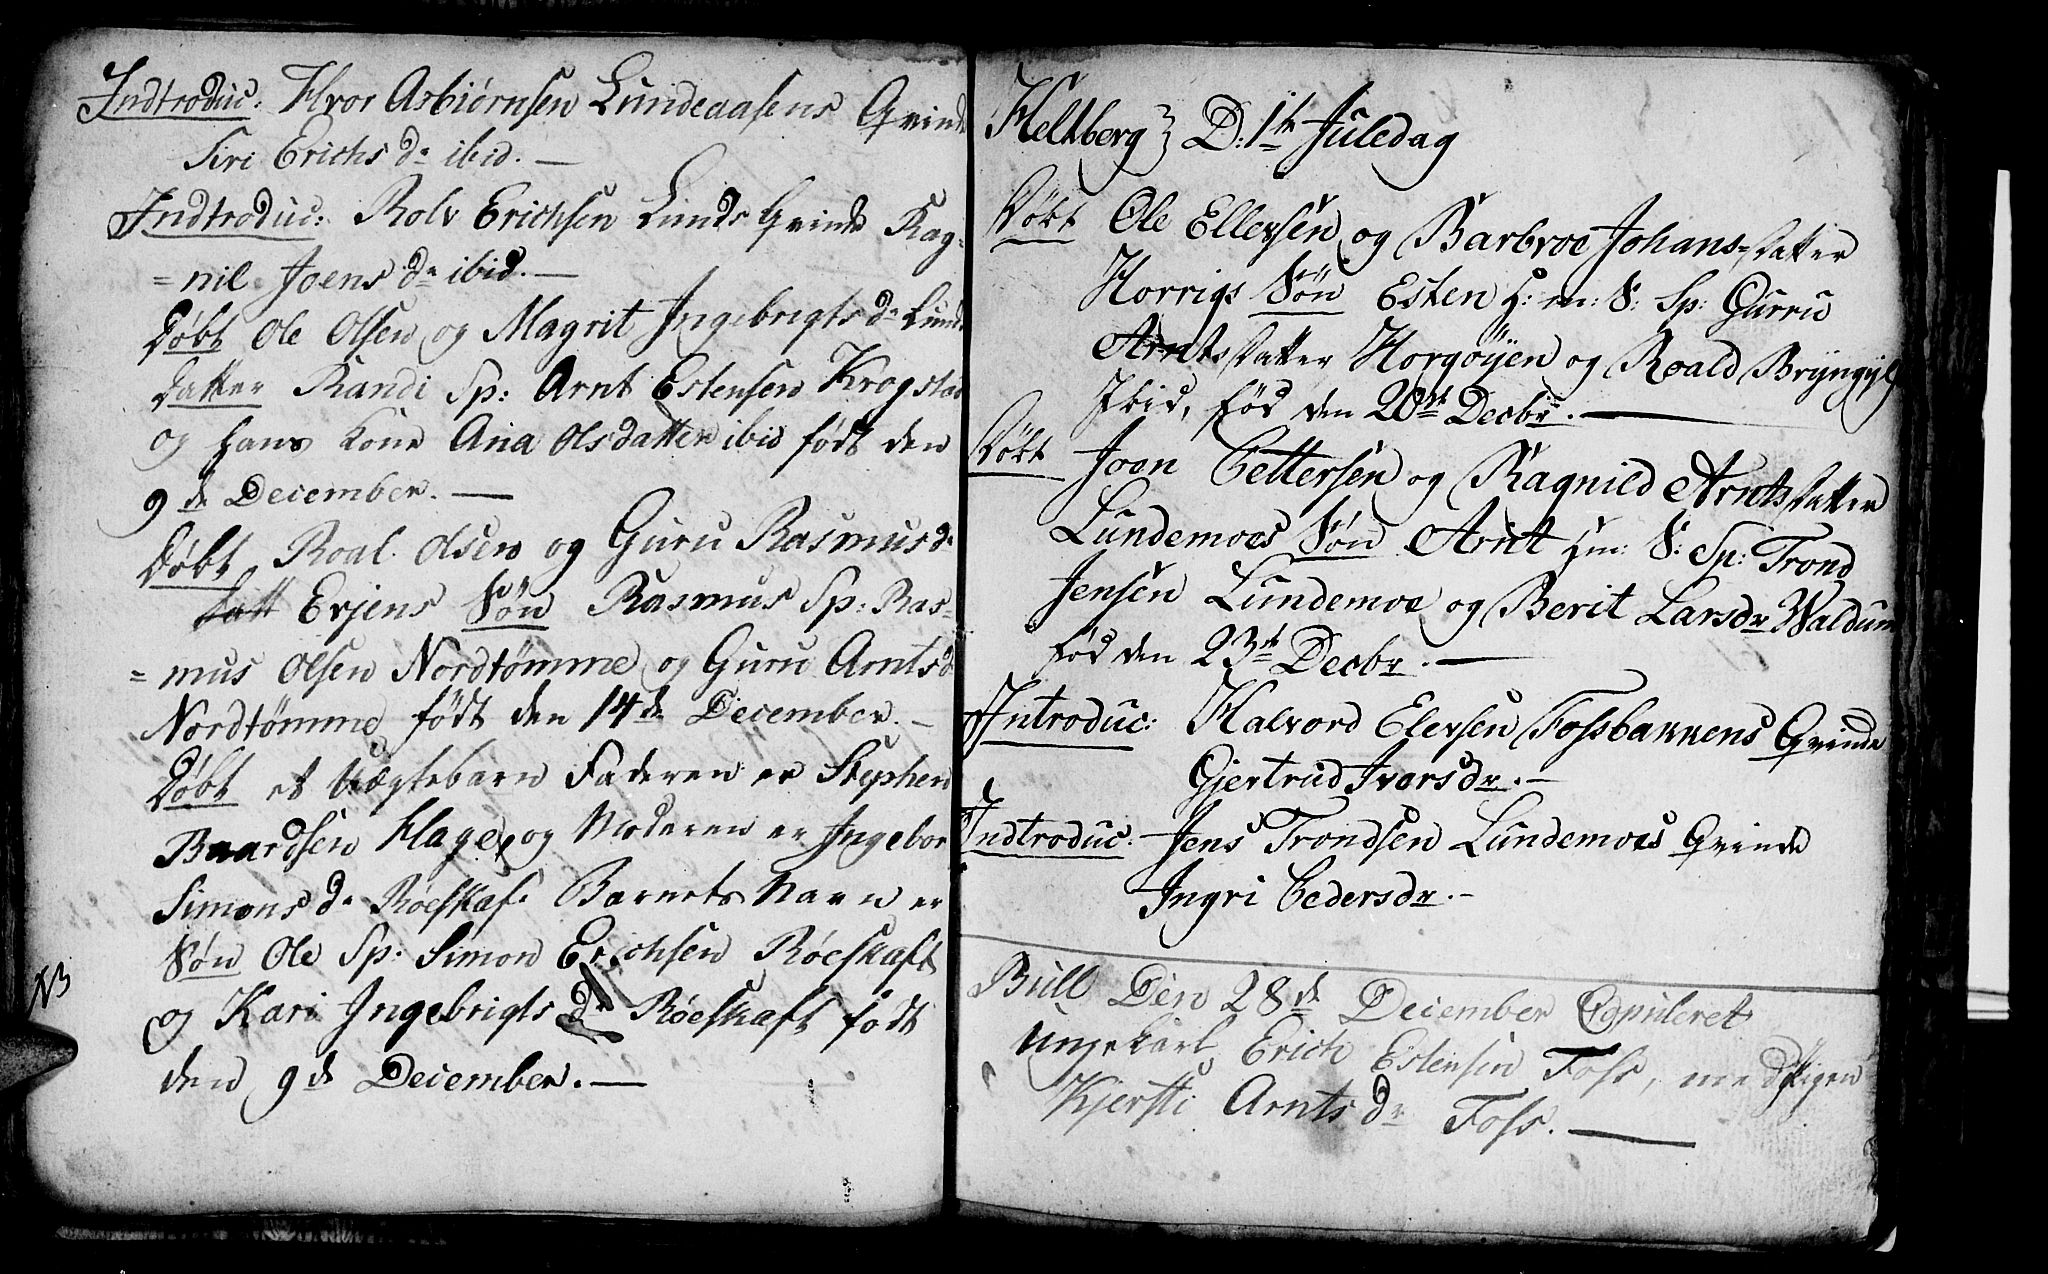 Indtroduc: Hvor Asbiørnsen Lundeaasens Qvinde
Siri Erichs dr ibid. —
Indtroduc: Rolv Erichsen Lunds Qvinde Rag-
=nil Joens dr ibid. —
Døbt Ole Olsen og Magrit Ingebrigts dr Lunds
datter Randi Sp: Arnt Estensen Krogstad
og hans Kone Ana Olsdatter ibid født den
9de December. —
Døbt Roal Olsen og Guru Rasmusdr
datt Evjens Søn Rasmus Sp: Ras-
=mus Olsen Nordtømme og Guru Arntsdr
Nordtømme født den 14de December. —
Døbt et Uægtebarn Faderen er Stephen
Baardsen Hage, og Moderen er Ingebor
Simons dr Røeskaft Barnets Navn er
Søn Ole Sp: Simon Erichsen Røeskaft
NB
og Kari Ingebrigts dr Røeskaft født
den 9de December. —
Heltberg D: 1te Juledag
Døbt Ole Ellevsen og Barbroe Johans-datter
Horrigs Søn Esten H: m: S: Sp: Gurru
Arntsdatter Horgøÿen og Roald Brÿngÿls
Ibid, fød den 20de Decbr. —
Døbt Joen Pettersen og Ragnild Arntsdatter
Lundemoes Søn Arnt Hm: S: Sp: Trond
Jensen Lundemoe og Berit Larsdr Waldum
fød den 23de Decbr. —
Introduc: Halvord Elevsen Fossbakkens Qvinde
Gjertrud Ivarsdr. —
Indtroduc: Jens Trondsen Lundemoes Qvinde
Ingri Pedersdr. —
Bull Den 28de December Copuleret
Ungekarl Erich Estensen Foss, med Pigen
Kjersti Arnts dr Foss. —